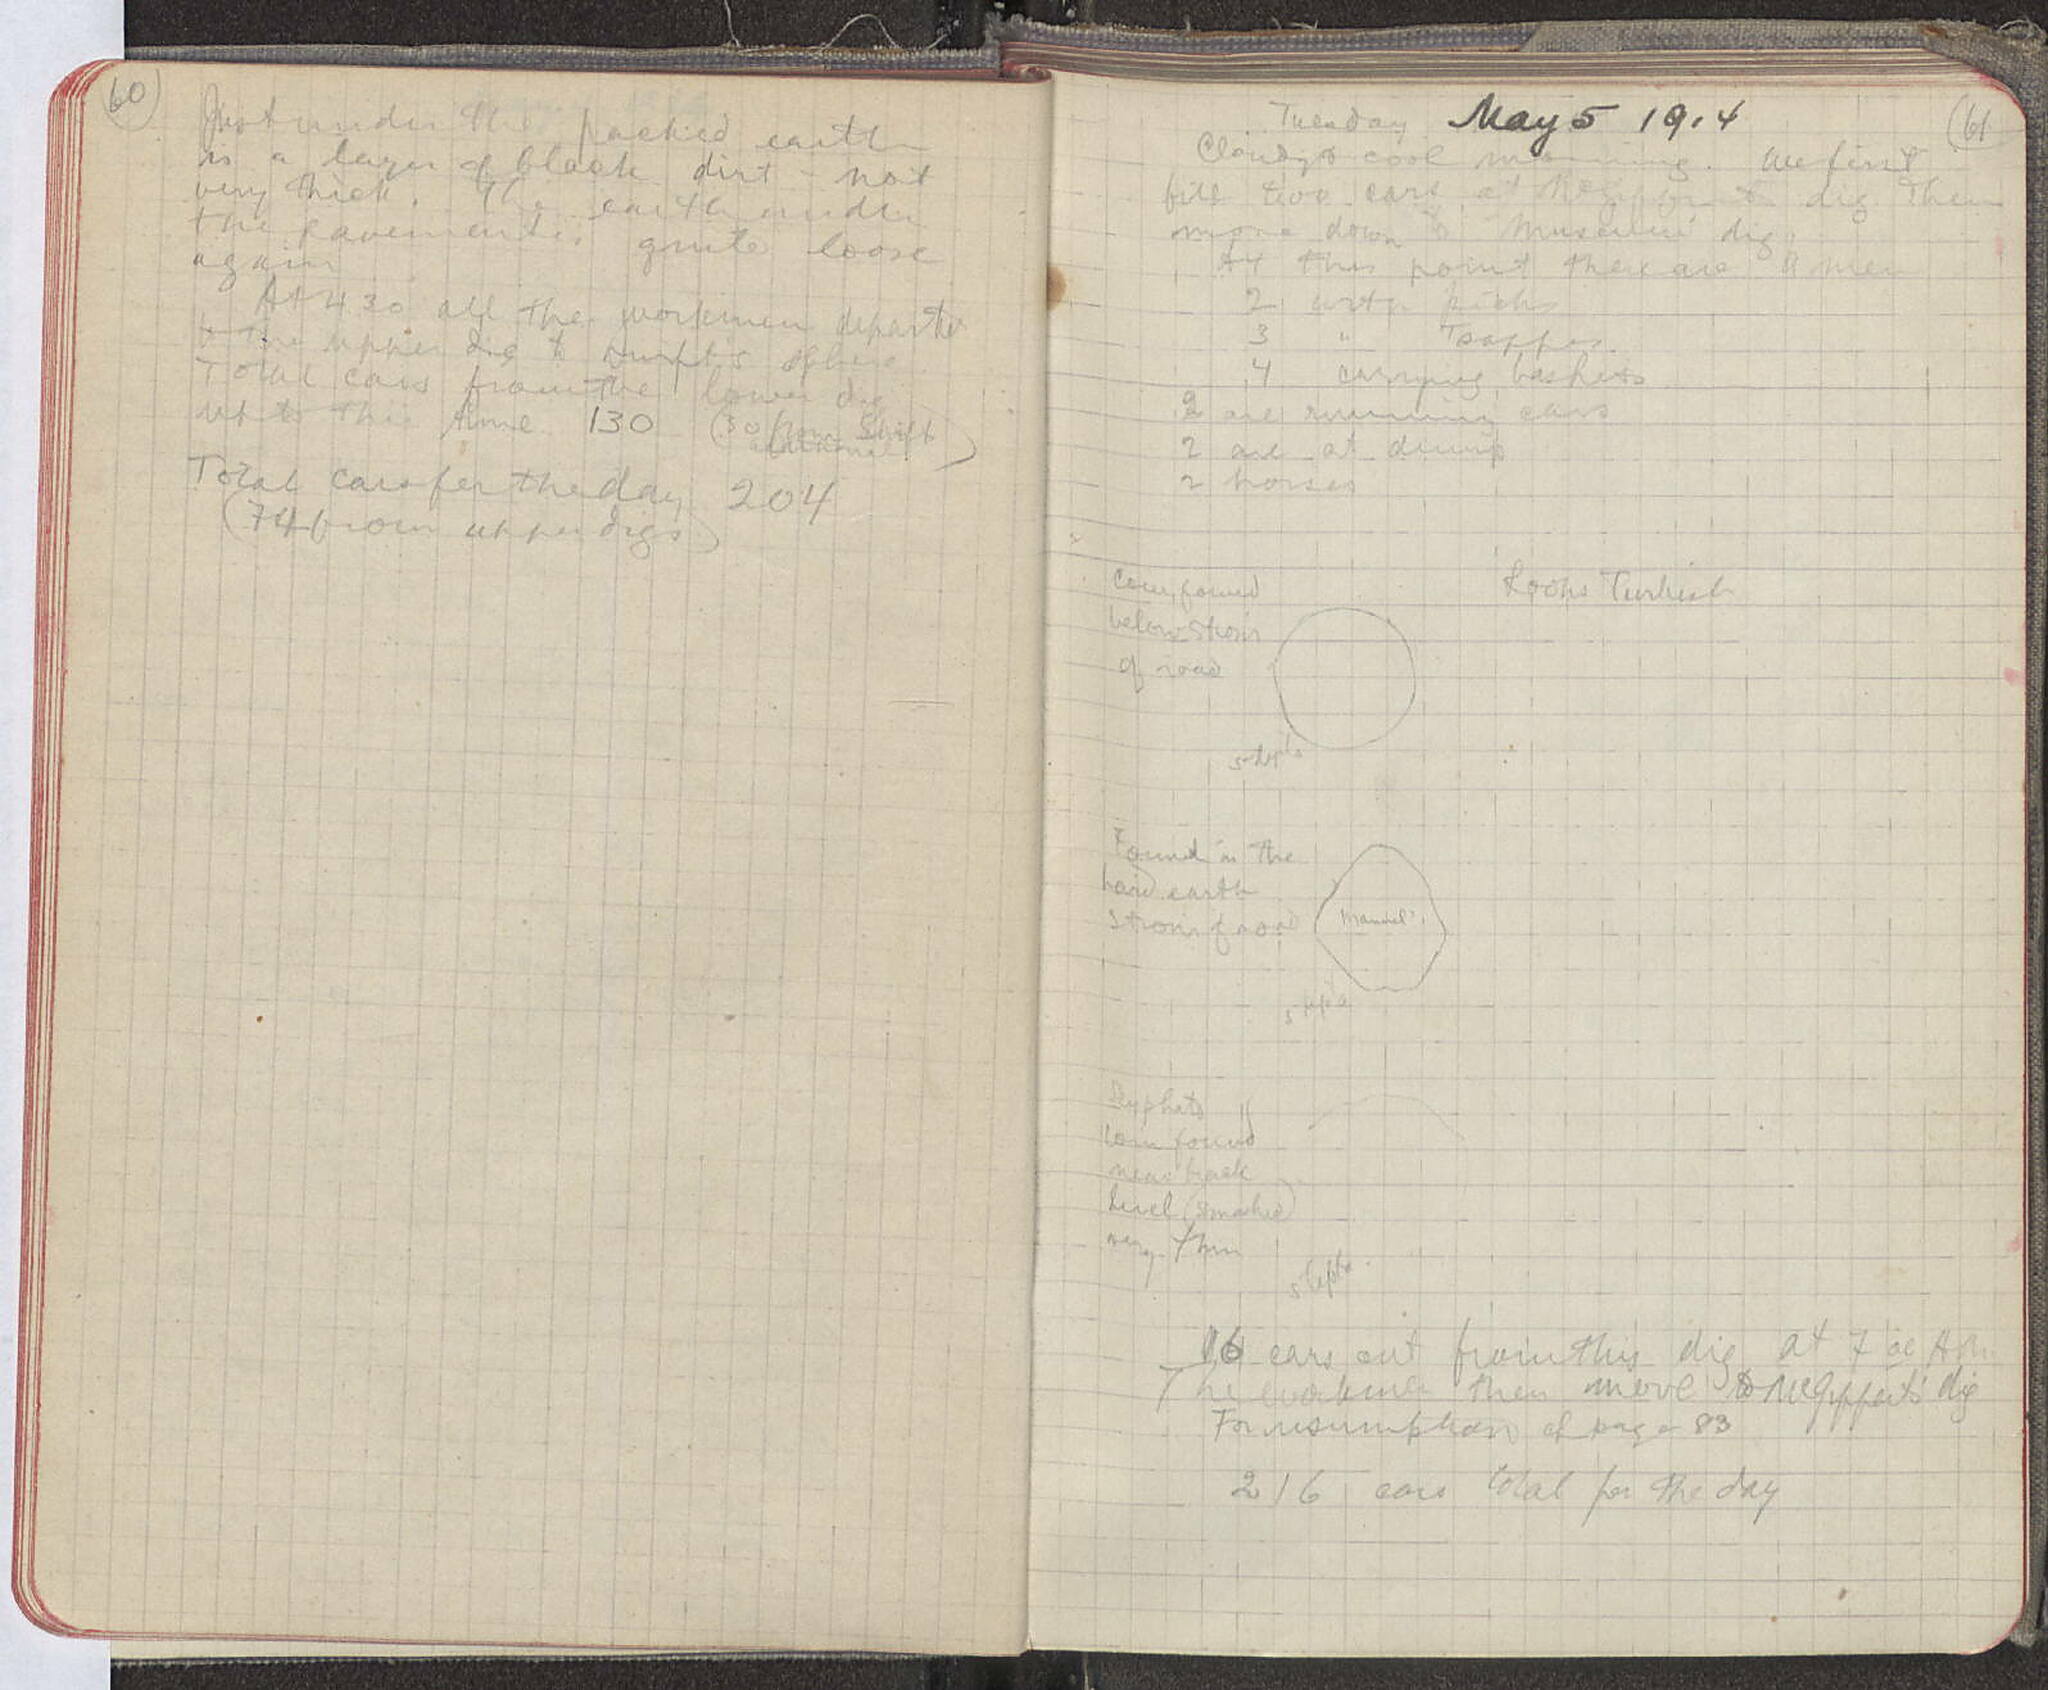 60
Just under the packed earth
is a layer of black dirt - not
very thick. The earth under
the pavement is quite loose
again
At 430 all the workmen depart
to the upper dig to
Total cars from the lower dig
up to this time 130 (30 from Swift
Total cars for the day 204
(74 from upper digs)
61
Tuesday May 5 1914
Cloudy & cool morning. We first
fill two cars at dig then
move down to Museum dig.
At this point there are 11 men
2 with picks
3 " Tsappas
4 carrying baskets
2 are running cars
2 are at dump
2 horses
Coin found
below strosis
of road
Looks Turkish
5 lepta
Found in the
hard earth
strosis of road
Manuel?
5 lepta
Scyphate
coin found
near track
level (smashed)
very thin
5 lepta
16 cars out from this dig at 7 AM
The workmen then move to dig
For resumption cf page 83
216 cars total for the day